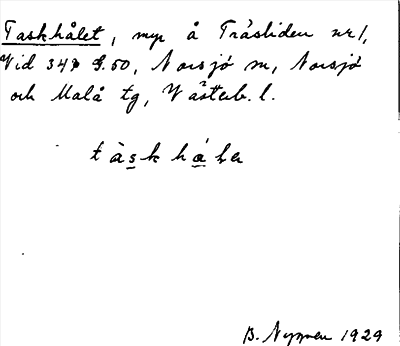 Taskhålet, myr å Träsliden nr 1,
Vid 347 G.50, Norsjö sn, Norsjö
och Malå tg, Västerb. l.
tàskhá
B. Nyman 1929